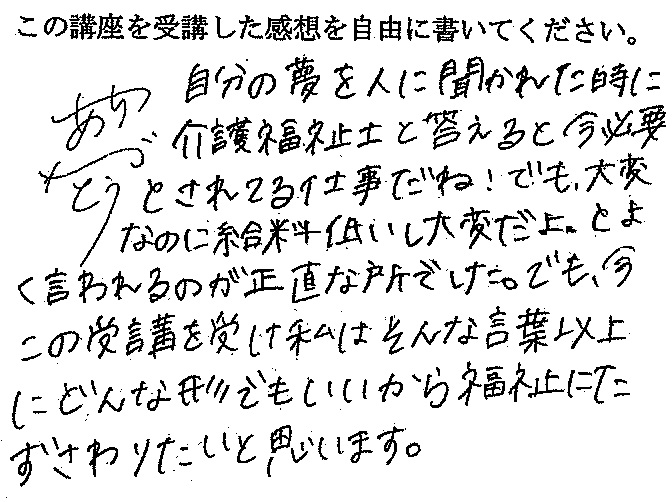 この講座を受講した感想を自由に書いてください。
自分の夢を人に聞かれた時に
介護福祉士と答えると今必要
とされてる仕事だね！でも、大変
なのに給料低いし大変だよ。とよ
く言われるのが正直な所でした。でも、今
この受講を受け私はそんな言葉以上
にどんな形でもいいから福祉にた
ずさわりたいと思います。
ありが
とう